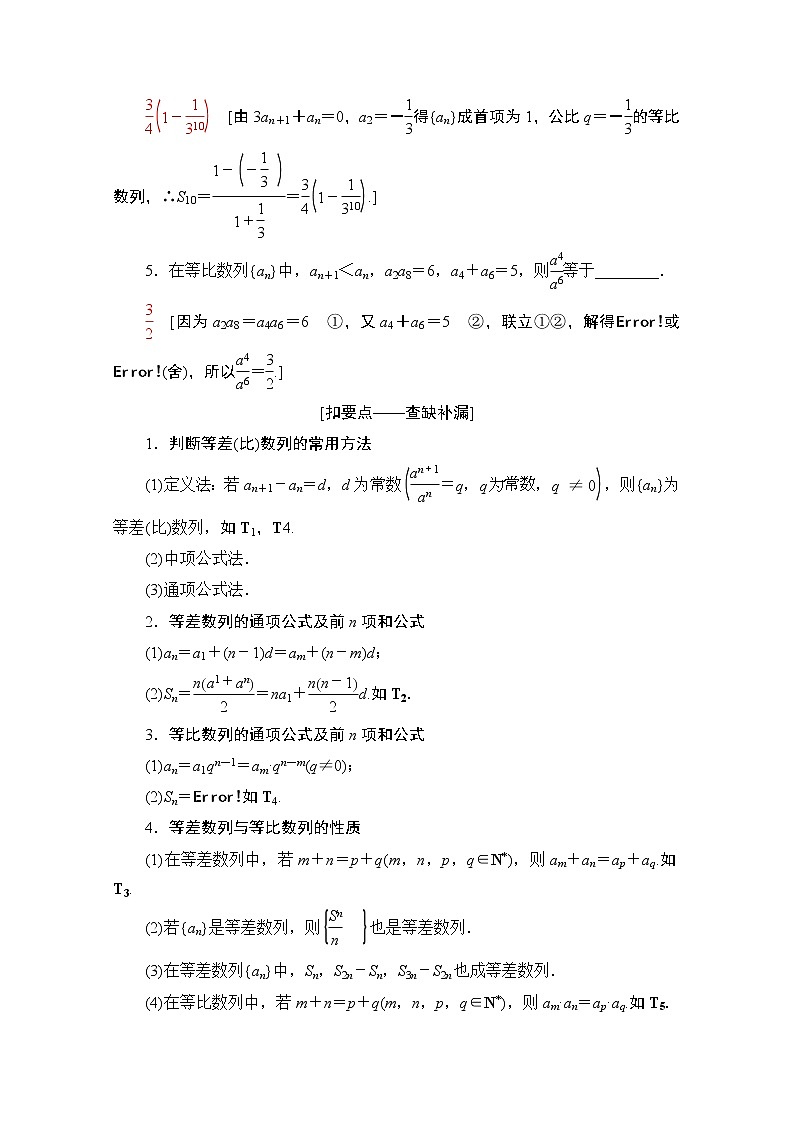 3/4(1-1/3¹⁰) [由3aₙ₊₁+aₙ=0，a₂=-1/3得{aₙ}成首项为1，公比q=-1/3的等比
数列，∴S₁₀=(1-(-1/3))/(1+1/3)=3/4(1-1/3¹⁰).]
5．在等比数列{aₙ}中，aₙ₊₁＜aₙ，a₂a₈=6，a₄+a₆=5，则a⁴/a⁶等于________．
3/2 [因为a₂a₈=a₄a₆=6 ①，又a₄+a₆=5 ②，联立①②，解得Error!或
Error!(舍)，所以a⁴/a⁶=3/2.]
[扣要点——查缺补漏]
1．判断等差(比)数列的常用方法
(1)定义法：若aₙ₊₁-aₙ=d，d为常数(aⁿ⁺¹/aⁿ=q，q为常数，q ≠0)，则{aₙ}为
等差(比)数列，如T₁，T4.
(2)中项公式法．
(3)通项公式法．
2．等差数列的通项公式及前n项和公式
(1)aₙ=a₁+(n-1)d=aₘ+(n-m)d；
(2)Sₙ=n(a¹+aⁿ)/2=na₁+n(n-1)/2d.如T₂.
3．等比数列的通项公式及前n项和公式
(1)aₙ=a₁qⁿ⁻¹=aₘ·qⁿ⁻ᵐ(q≠0)；
(2)Sₙ=Error!如T₄.
4．等差数列与等比数列的性质
(1)在等差数列中，若m+n=p+q(m，n，p，q∈N*)，则aₘ+aₙ=aₚ+a_q.如
T₃.
(2)若{aₙ}是等差数列，则{Sⁿ/n}也是等差数列．
(3)在等差数列{aₙ}中，Sₙ，S₂ₙ-Sₙ，S₃ₙ-S₂ₙ也成等差数列．
(4)在等比数列中，若m+n=p+q(m，n，p，q∈N*)，则aₘ·aₙ=aₚ·a_q.如T₅.